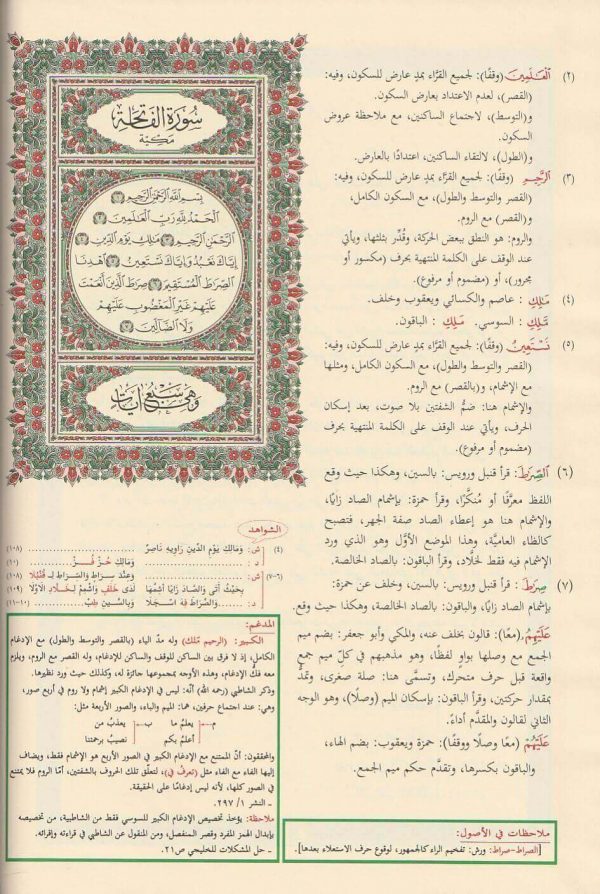 سُورَةُ الفَاتِحَةِ
مَكِّيَّة
بِسْمِ اللَّهِ الرَّحْمَٰنِ الرَّحِيمِ ۝١
الْحَمْدُ لِلَّهِ رَبِّ الْعَٰلَمِينَ ۝٢
الرَّحْمَٰنِ الرَّحِيمِ ۝٣ مَٰلِكِ يَوْمِ الدِّينِ ۝٤
إِيَّاكَ نَعْبُدُ وَإِيَّاكَ نَسْتَعِينُ ۝٥ اهْدِنَا
الصِّرَٰطَ الْمُسْتَقِيمَ ۝٦ صِرَٰطَ الَّذِينَ أَنْعَمْتَ
عَلَيْهِمْ غَيْرِ الْمَغْضُوبِ عَلَيْهِمْ
وَلَا الضَّالِّينَ ۝٧
وَهِيَ سَبْعُ آيَاتٍ
(٢) الْعَٰلَمِينَ (وقفًا): لجميع القرَّاء بمدٍ عارض للسكون، وفيه:
(القصر)، لعدم الاعتداد بعارض السكون.
و(التوسط)، لاجتماع الساكنين، مع ملاحظة عروض
السكون.
و(الطول)، لالتقاء الساكنين، اعتدادًا بالعارض.
(٣) الرَّحِيمِ (وقفًا): لجميع القرَّاء بمدٍ عارض للسكون، وفيه:
(القصر والتوسط والطول)، مع السكون الكامل،
و(القصر) مع الروم.
والروم: هو النطق ببعض الحركة، وقُدِّر بثلثها، ويأتي
عند الوقف على الكلمة المنتهية بحرف (مكسور أو
مجرور)، أو (مضموم أو مرفوع).
(٤) مَٰلِكِ : عاصم والكسائي ويعقوب وخلف.
مَّلِكِ : السوسي. مَلِكِ : الباقون.
(٥) نَسْتَعِينُ (وقفًا): لجميع القرَّاء بمدٍ عارض للسكون، وفيه:
(القصر والتوسط والطول)، مع السكون الكامل، ومثلها
مع الإشمام، و(بالقصر) مع الروم.
والإشمام هنا: ضمُّ الشفتين بلا صوت، بعد إسكان
الحرف، ويأتي عند الوقف على الكلمة المنتهية بحرف
(مضموم أو مرفوع).
(٦) الصِّرَٰطَ: قرأ قنبل ورويس: بالسين، وهكذا حيث وقع
اللفظ معرَّفًا أو مُنكَّرًا، وقرأ حمزة: بإشمام الصاد زايًا،
والإشمام هنا هو إعطاء الصاد صفة الجهر، فتصبح
كالظاء العاميَّة، وهذا الموضع الأوَّل وهو الذي ورد
الإشمام فيه فقط لخلَّاد، وقرأ الباقون: بالصاد الخالصة.
(٧) صِرَٰطَ : قرأ قنبل ورويس: بالسين، وخلف عن حمزة:
بإشمام الصاد زايًا، والباقون: بالصاد الخالصة، وهكذا حيث وقع.
عَلَيْهِمُ (معًا): قالون بخلف عنه، والمكي وأبو جعفر: بضم ميم
الجمع مع وصلها بواو لفظًا، وهو مذهبهم في كلِّ ميم جمع
واقعة قبل حرف متحرك، وتسمَّى هنا: صلة صغرى، وتمدُّ
بمقدار حركتين، وقرأ الباقون: بإسكان الميم (وصلًا)، وهو الوجه
الثاني لقالون والمقدَّم أداءً.
عَلَيْهُمْ (معًا وصلًا ووقفًا): حمزة ويعقوب: بضم الهاء،
والباقون بكسرها، وتقدَّم حكم ميم الجمع.
الشواهد
(٤) ش : وَمَالِكِ يَوْمِ الدِّينِ رَاوِيهِ نَاصِرٌ ........ (١٠٨)
د : ........ وَمَالِكِ حُزْ فُـزْ (١٠)
(٦-٧) ش : ........ وَعِنْدَ سِرَاطٍ وَالسِّرَاطَ لِـ قُنْبُلَا (١٠٨)
بِحَيْثُ أَتَى وَالصَّادَ زَايًا اشِمَّهَا لَدَى خَلَفٍ وَاشْمِمْ لِخَلَّادٍ الَاوَّلَا (١٠٩)
د : ........ وَالصِّرَاطَ فِهَ اسْجَلَا وَبِالسِّينِ طِبْ ........ (١٠-١١)
المدغم:
الكبير: (الرحيم مَّلك) وله مدّ الياء (بالقصر والتوسط والطول) مع الإدغام
الكامل، إذ لا فرق بين الساكن للوقف والساكن للإدغام، وله القصر مع الروم، ويلزم
معه فكُّ الإدغام، وهذه الأوجه بمجموعها جائزة له، وكذلك حيث ورد نظيرها.
وذكر الشاطبي (رحمه الله) أنَّه: ليس في الإدغام الكبير إشمام ولا روم في أربع صور،
وهي: عند اجتماع حرفين، هما: الميم والباء، والصور الأربعة مثل:
م يعلمُ ما ب يعذبُ من
أعلمُ بكم نصيبُ برحمتنا
والمحققون: أنَّ الممتنع مع الإدغام الكبير في الصور الأربع هو الإشمام فقط، ويضاف
إليها الفاء مع الفاء مثل (تعرفُ في)، لتعلّق تلك الحروف بالشفتين، أمّا الروم فلا يمتنع
في الصور كلها، لأنه ليس إدغامًا على الحقيقة.
- النشر ١/ ٢٩٧.
ملاحظة: يؤخذ تخصيص الإدغام الكبير للسوسي فقط من الشاطبية، من تخصيصه
بإبدال الهمز المفرد وقصر المنفصل، ومن المنقول عن الشاطبي في قراءته وإقرائه.
- حل المشكلات للخليجي ص٢١.
ملاحظات في الأصول:
[الصراط-صراط: ورش: تفخيم الراء كالجمهور، لوقوع حرف الاستعلاء بعدها].